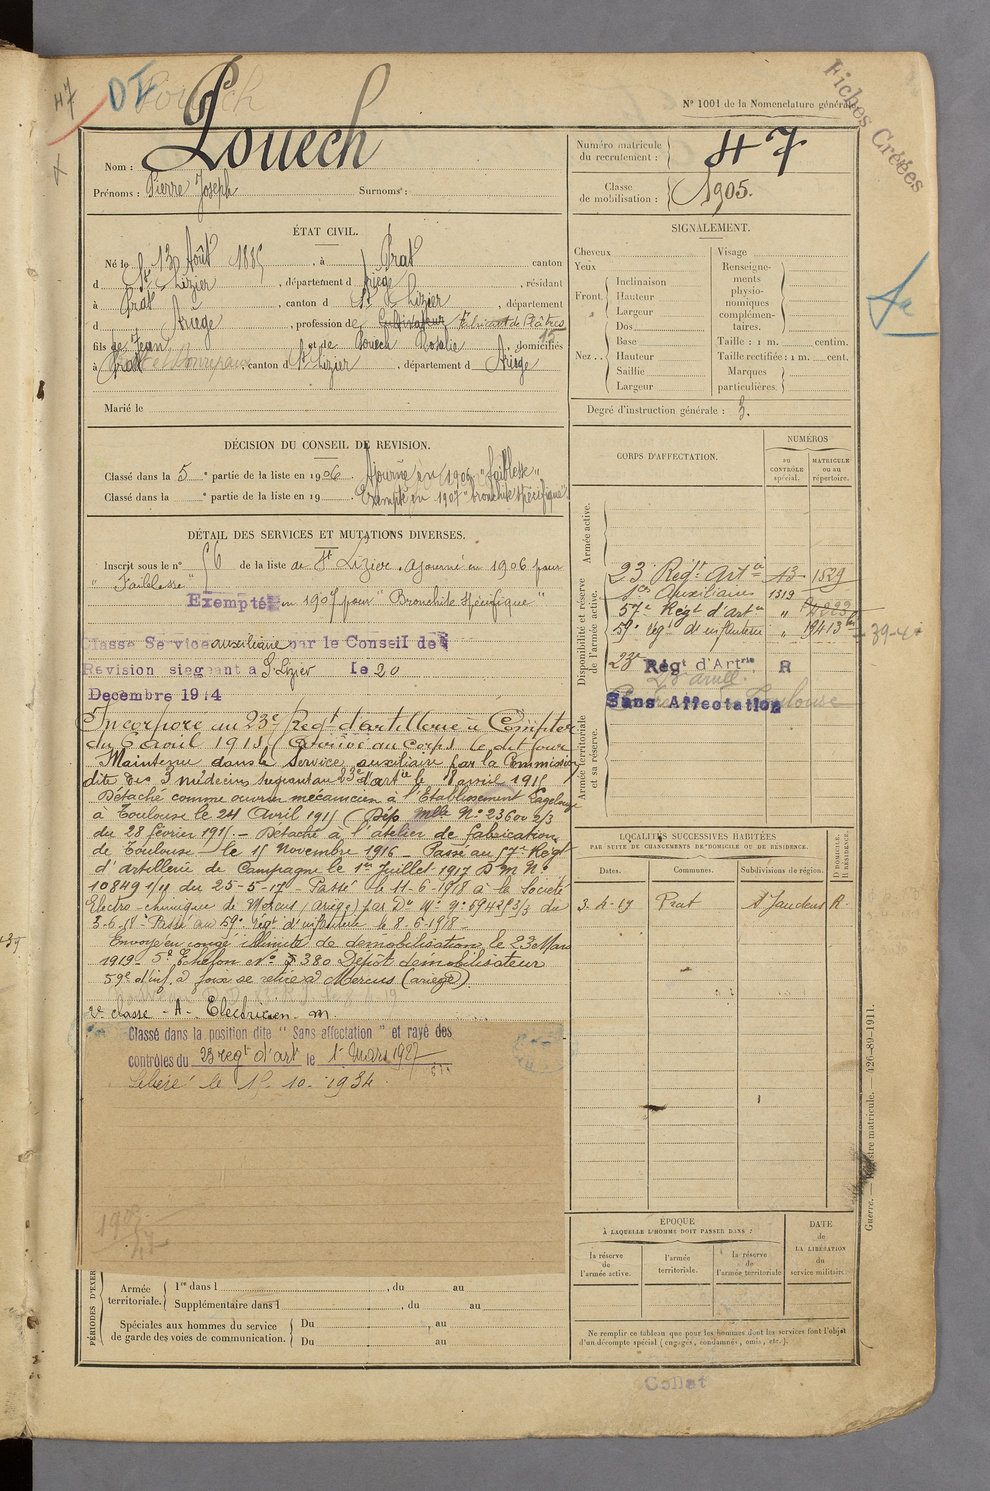 47
Fiches Créées
N° 1001 de la Nomenclature générale.
Nom : Pouech
Prénoms : Pierre Joseph Surnoms :
Numéro matricule du recrutement : 47
Classe de mobilisation : 1905.
ÉTAT CIVIL.
Né le 13 Août 1885, à Prat canton
d St Lizier, département d Ariège, résidant
à Prat, canton d St Lizier, département
d Ariège, profession de Cultivateur Fabricant de Plâtres
fils de Jean et de Pouech Rosalie, domiciliés
à Prat et Bonrepaux, canton d St Lizier, département d Ariège
Marié le
SIGNALEMENT.
Cheveux
Yeux
Front. Inclinaison
Hauteur
Largeur
Dos
Nez .. Base
Hauteur
Saillie
Largeur
Visage
Renseignements physionomiques complémentaires.
Taille : 1 m. centim.
Taille rectifiée : 1 m. cent.
Marques particulières.
Degré d'instruction générale : 3.
DÉCISION DU CONSEIL DE REVISION.
Classé dans la 5 e partie de la liste en 1906. Ajourné en 1906 "faiblesse"
Classé dans la e partie de la liste en 19 . Exempté en 1907 "bronchite spécifique"
DÉTAIL DES SERVICES ET MUTATIONS DIVERSES.
Inscrit sous le n° 56 de la liste de St Lizier. Ajourné en 1906 pour
"Faiblesse"
Exempté en 1907 pour "Bronchite spécifique"
Classé Service auxiliaire par le Conseil de
Revision siegeant a St Lizier le 20
Decembre 1914
Incorporé au 23e Régt d'artillerie à Compter
du 6 avril 1915. Arrivé au corps le dit jour
Maintenu dans le Service auxiliaire par la Commission
dite des 3 médecins siégeant au 23e d'artie le 8 avril 1915
Détaché comme ouvrier mécanicien à l'Etablissement
à Toulouse le 24 Avril 1915 (Dép. Mlle N° 23600 2/3
du 28 février 1915. - Détaché à l'atelier de fabrication
de Toulouse le 15 Novembre 1916 - Passé au 57e Régt
d'artillerie de Campagne le 1er Juillet 1917 D M N°
10849 1/11 du 25-5-17 - Passé le 11-6-1918 à la Société
Electro-chimique de Mercus (Ariège) par Don Mle N° 69425 3/3 du
3-6-18 - Passé au 59e régt d'infanterie le 8-6-1918 -
Envoyé en congé illimité de démobilisation le 23 Mars
1919. 5e Echelon N° 380 Dépôt démobilisateur
59e d'inf. à foix se retire à Mercus (ariège).
2e classe - A - Electricien. m.
Classé dans la position dite " Sans affectation " et rayé des
contrôles du 23 regt d'art le 1er Mars 1927
Libéré le 15. 10. 1934.
CORPS D'AFFECTATION.
NUMÉROS
au CONTRÔLE spécial.
MATRICULE ou au répertoire.
Armée active.
Disponibilité et réserve de l'armée active.
23 Régt Artie 13 1529
Sces Auxiliaires 1319
57e Régt d'artie "
59e régt d'infanterie " 19413
23e Régt d'Artrie R
Sans Affectation
Armée territoriale et sa réserve.
LOCALITÉS SUCCESSIVES HABITÉES
PAR SUITE DE CHANGEMENTS DE DOMICILE OU DE RÉSIDENCE.
Dates. Communes. Subdivisions de région. D DOMICILE. R RÉSIDENCE.
3-4-19 Prat St Gaudens R.
ÉPOQUE
À LAQUELLE L'HOMME DOIT PASSER DANS :
la réserve de l'armée active.
l'armée territoriale.
la réserve de l'armée territoriale
DATE de LA LIBÉRATION du service militaire.
Ne remplir ce tableau que pour les hommes dont les services font l'objet
d'un décompte spécial (engagés, condamnés, omis, etc.).
PÉRIODES D'EXER
Armée territoriale. 1re dans l , du au
Supplémentaire dans l , du au
Spéciales aux hommes du service de garde des voies de communication. Du , au
Du au
Guerre. — Registre matricule. — 426-89-1911.